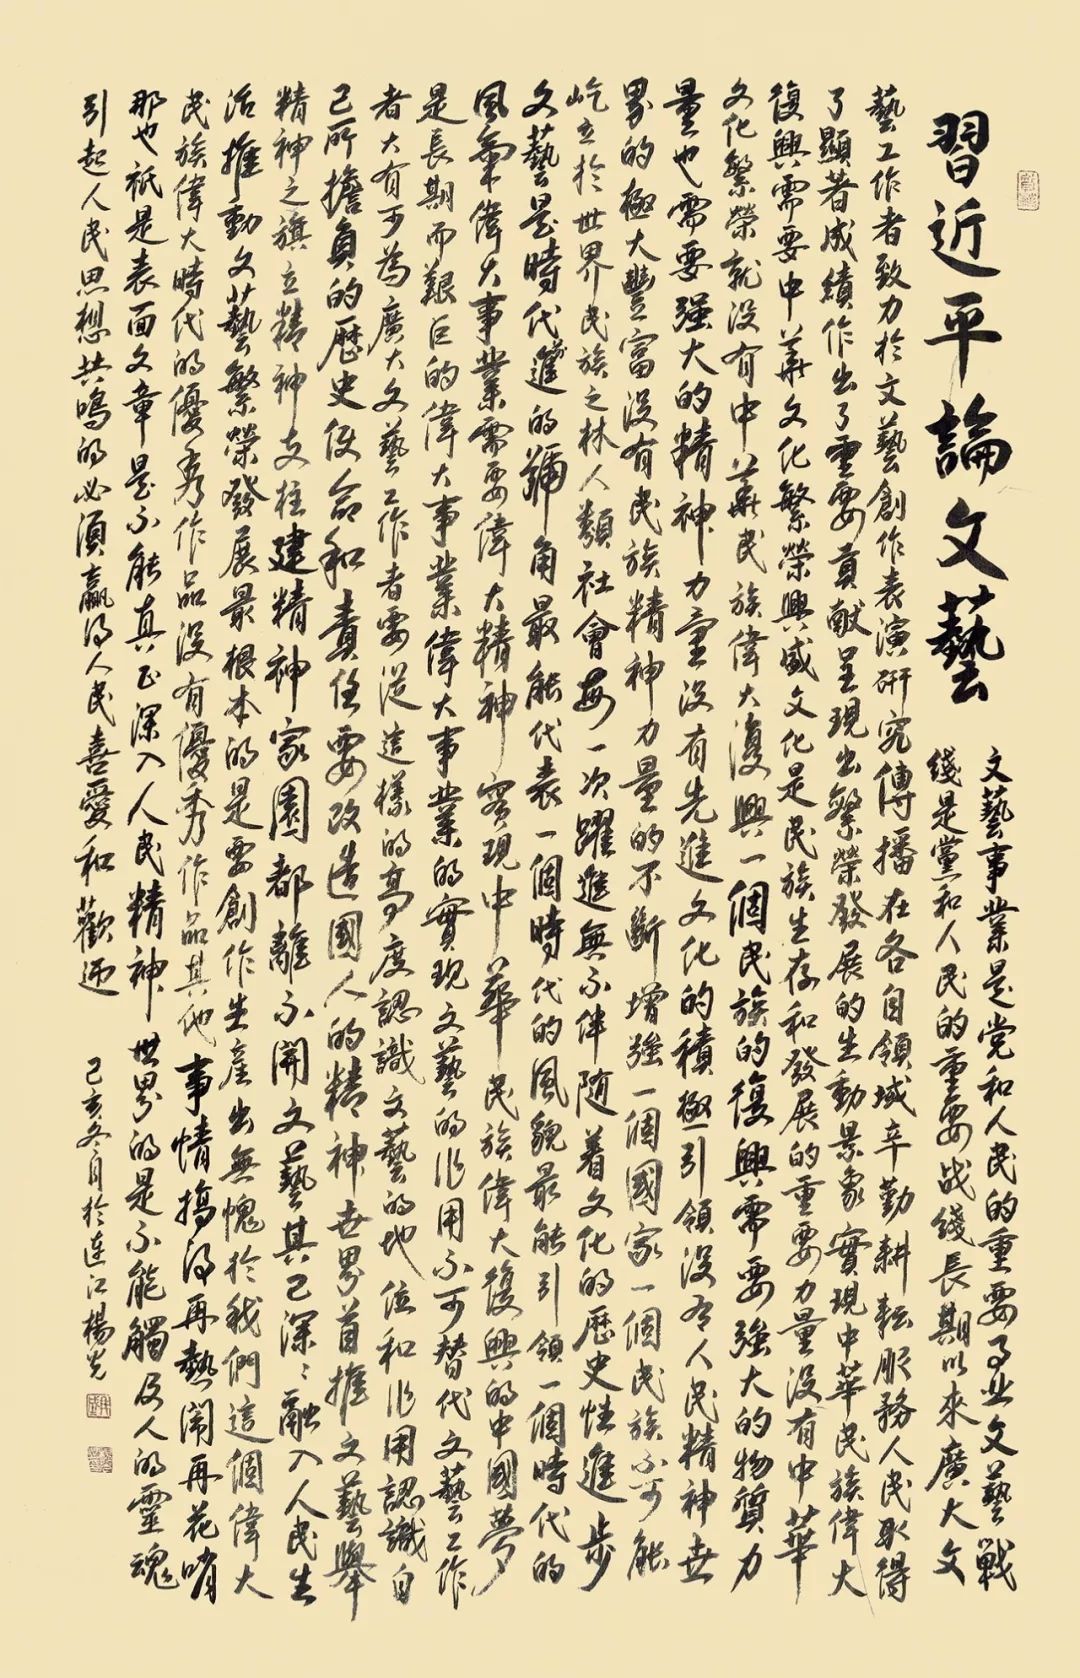 習近平論文藝
文藝事業是党和人民的重要事业文藝戰
綫是黨和人民的重要战綫長期以來廣大文
藝工作者致力於文藝創作表演研究傳播在各自領域辛勤耕耘服務人民取得
了顯著成績作出了重要貢献呈現出繁榮發展的生動景象實現中華民族偉大
復興需要中華文化繁榮興盛文化是民族生存和發展的重要力量没有中華
文化繁榮就没有中華民族偉大復興一個民族的復興需要強大的物質力
量也需要强大的精神力量没有先進文化的積極引領没有人民精神世
界的極大豐富没有民族精神力量的不斷增強一個國家一個民族不可能
屹立於世界民族之林人類社會每一次躍進無不伴随着文化的歷史性進步
文藝是時代進的號角最能代表一個時代的風貌最能引領一個時代的
風氣偉大事業需要偉大精神實現中華民族偉大復興的中國夢
是長期而艱巨的偉大事業偉大事業的實現文藝的作用不可替代文藝工作
者大有可為廣大文藝工作者要從這樣的高度認識文藝的地位和作用認識自
己所擔負的歷史使命和責任要改造國人的精神世界首推文藝舉
精神之旗立精神支柱建精神家園都離不開文藝其已深深融入人民生
活推動文藝繁榮發展最根本的是要創作生產出無愧於我們這個偉大
民族偉大時代的優秀作品没有優秀作品其他事情搞得再熱鬧再花哨
那也祇是表面文章是不能真正深入人民精神世界的是不能觸及人的靈魂
引起人民思想共鳴的必須贏得人民喜愛和歡迎
己亥冬月於连江楊光